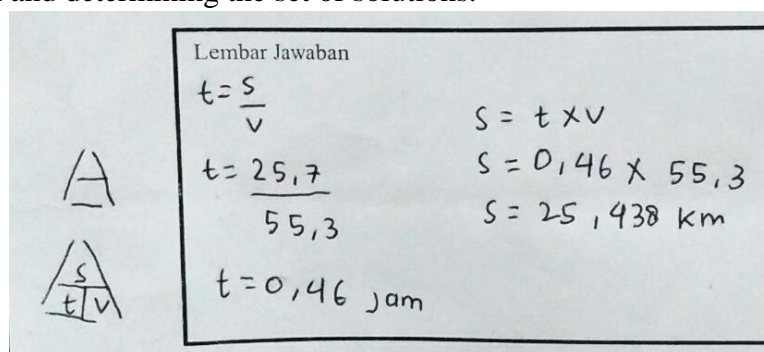 and determining the set of solutions.
Lembar Jawaban
t = s
v
t = 25,7
55,3
t = 0,46 jam
s = t x v
s = 0,46 x 55,3
s = 25,438 km
A
s
t v